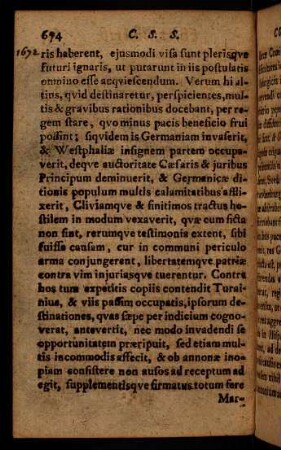 694 C. S. S.
1672. ris haberent, ejusmodi visa sunt plerisqve
futuri ignaris, ut putarunt in iis postulatis
omnino esse acqviescendum. Verum hi al-
tius, qvid destinaretur, perspicientes, mul-
tis & gravibus rationibus docebant, per re-
gem stare, qvo minus pacis beneficio frui
possint; siqvidem is Germaniam invaserit,
& Westphaliæ insignem partem occupa-
verit, deqve auctoritate Cæsaris & juribus
Principum deminuerit, & Germanicæ di-
tionis populum multis calamitatibus affli-
xerit, Cliviamqve & finitimos tractus ho-
stilem in modum vexaverit, qvæ cum ficta
non sint, rerumqve testimonia extent, sibi
fuisse causam, cur in communi periculo
arma conjungerent, libertatemqve patriæ
contra vim injuriasqve tuerentur. Contra
hos tum expeditis copiis contendit Turai-
nius, & viis passim occupatis, ipsorum de-
stinationes, qvas sæpe per indicium cogno-
verat, anteverit, nec modo invadendi se
opportunitatem præripuit, sed etiam mul-
tis incommodis affecit, & ob annonæ ino-
piam consistere non ausos ad receptum ad
egit, supplementisqve firmatus totum fere
Mar-